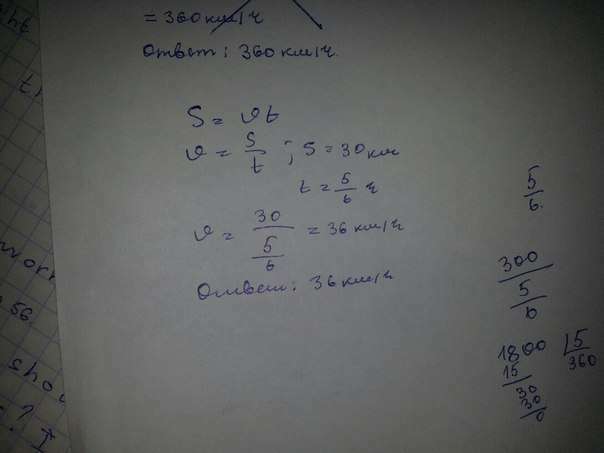 = 360 км/ч
Ответ: 360 км/ч.
S = υt
υ = S/t ; S = 30 км
t = 5/6 ч
υ = 30/(5/6) = 36 км/ч
Ответ: 36 км/ч
5/6
300/(5/6)
1800 | 5
15 360
30
30
0
56